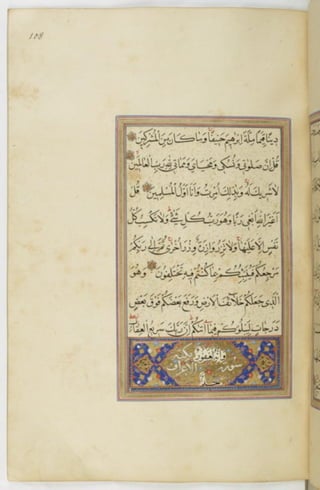 108
دِينًا قِيَمًا مِلَّةَ إِبْرَٰهِيمَ حَنِيفًا وَمَا كَانَ مِنَ الْمُشْرِكِينَ
قُلْ إِنَّ صَلَوتِي وَنُسُكِي وَمَحْيَايَ وَمَمَاتِي لِلَّهِ رَبِّ الْعَالَمِينَ
لَا شَرِيكَ لَهُ وَبِذَٰلِكَ أُمِرْتُ وَأَنَا أَوَّلُ الْمُسْلِمِينَ قُلْ
أَغَيْرَ اللَّهِ أَبْغِي رَبًّا وَهُوَ رَبُّ كُلِّ شَيْءٍ وَلَا تَكْسِبُ كُلُّ
نَفْسٍ إِلَّا عَلَيْهَا وَلَا تَزِرُ وَازِرَةٌ وِزْرَ أُخْرَىٰ ثُمَّ إِلَىٰ رَبِّكُمْ
مَرْجِعُكُمْ فَيُنَبِّئُكُمْ بِمَا كُنْتُمْ فِيهِ تَخْتَلِفُونَ وَهُوَ
الَّذِي جَعَلَكُمْ خَلَائِفَ الْأَرْضِ وَرَفَعَ بَعْضَكُمْ فَوْقَ بَعْضٍ
دَرَجَاتٍ لِيَبْلُوَكُمْ فِي مَا آتَيٰكُمْ إِنَّ رَبَّكَ سَرِيعُ الْعِقَابِ
سورة الاعراف مكية